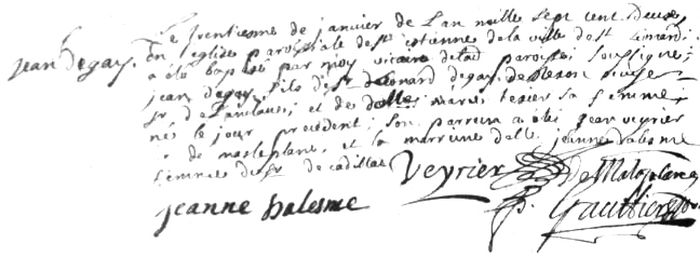 Le trentiesme de janvier de L'an mille sept cent Deux,
jean Degay. En l'eglise parroissiale de St estienne de la ville de St Leonard
a esté baptisé par moy vicaire de lad parroisse soussigné
jean degay fils de Sr Leonard degay de
Sr de et de dolle marie texier sa femme
nes le jour precedent; son parrein a esté jean veyrier
Sr de masleplane, et la marreine delle jeanne dalesme
femme de Sr de cadillac
Veyrier De Malaplane
jeanne dalesme Gaultier